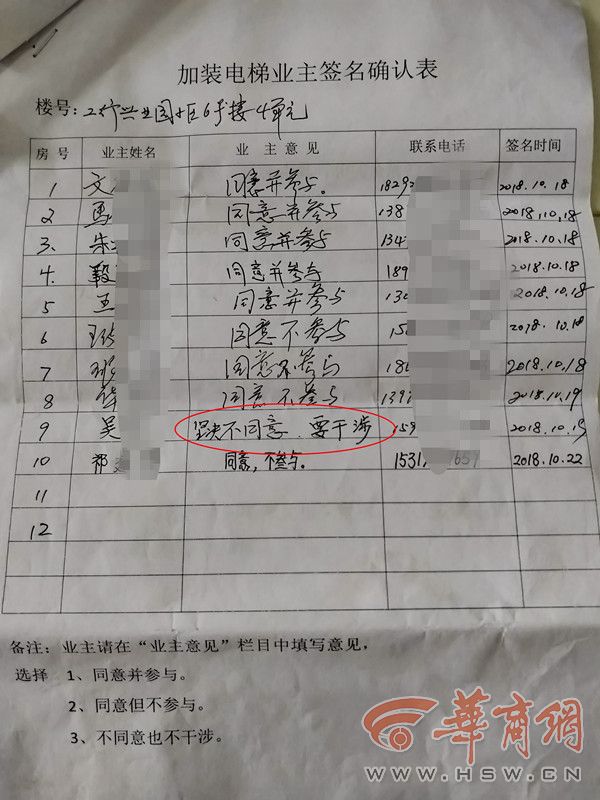 加装电梯业主签名确认表
楼号：工行兴业园小区6号楼4单元
房号 业主姓名 业主意见 联系电话 签名时间
1 文 同意并参与。 1829 2018.10.18
2 同意并参与 138 2018.10.18
3. 朱 同意并参与 134 2018.10.18
4. 同意并参与 189 2018.10.18
5 王 同意并参与 13 2018.10.18
6 同意不参与 15 2018.10.18
7 同意不参与 18 2018.10.18
8 同意不参与 139 2018.10.19
9 吴 坚决不同意.要干涉 159 2018.10.19
10 祁 同意,不参与。 1531 2018.10.22
11
12
备注：业主请在“业主意见”栏目中填写意见，
选择 1、同意并参与。
2、同意但不参与。
3、不同意也不干涉。
華商網
WWW.HSW.CN